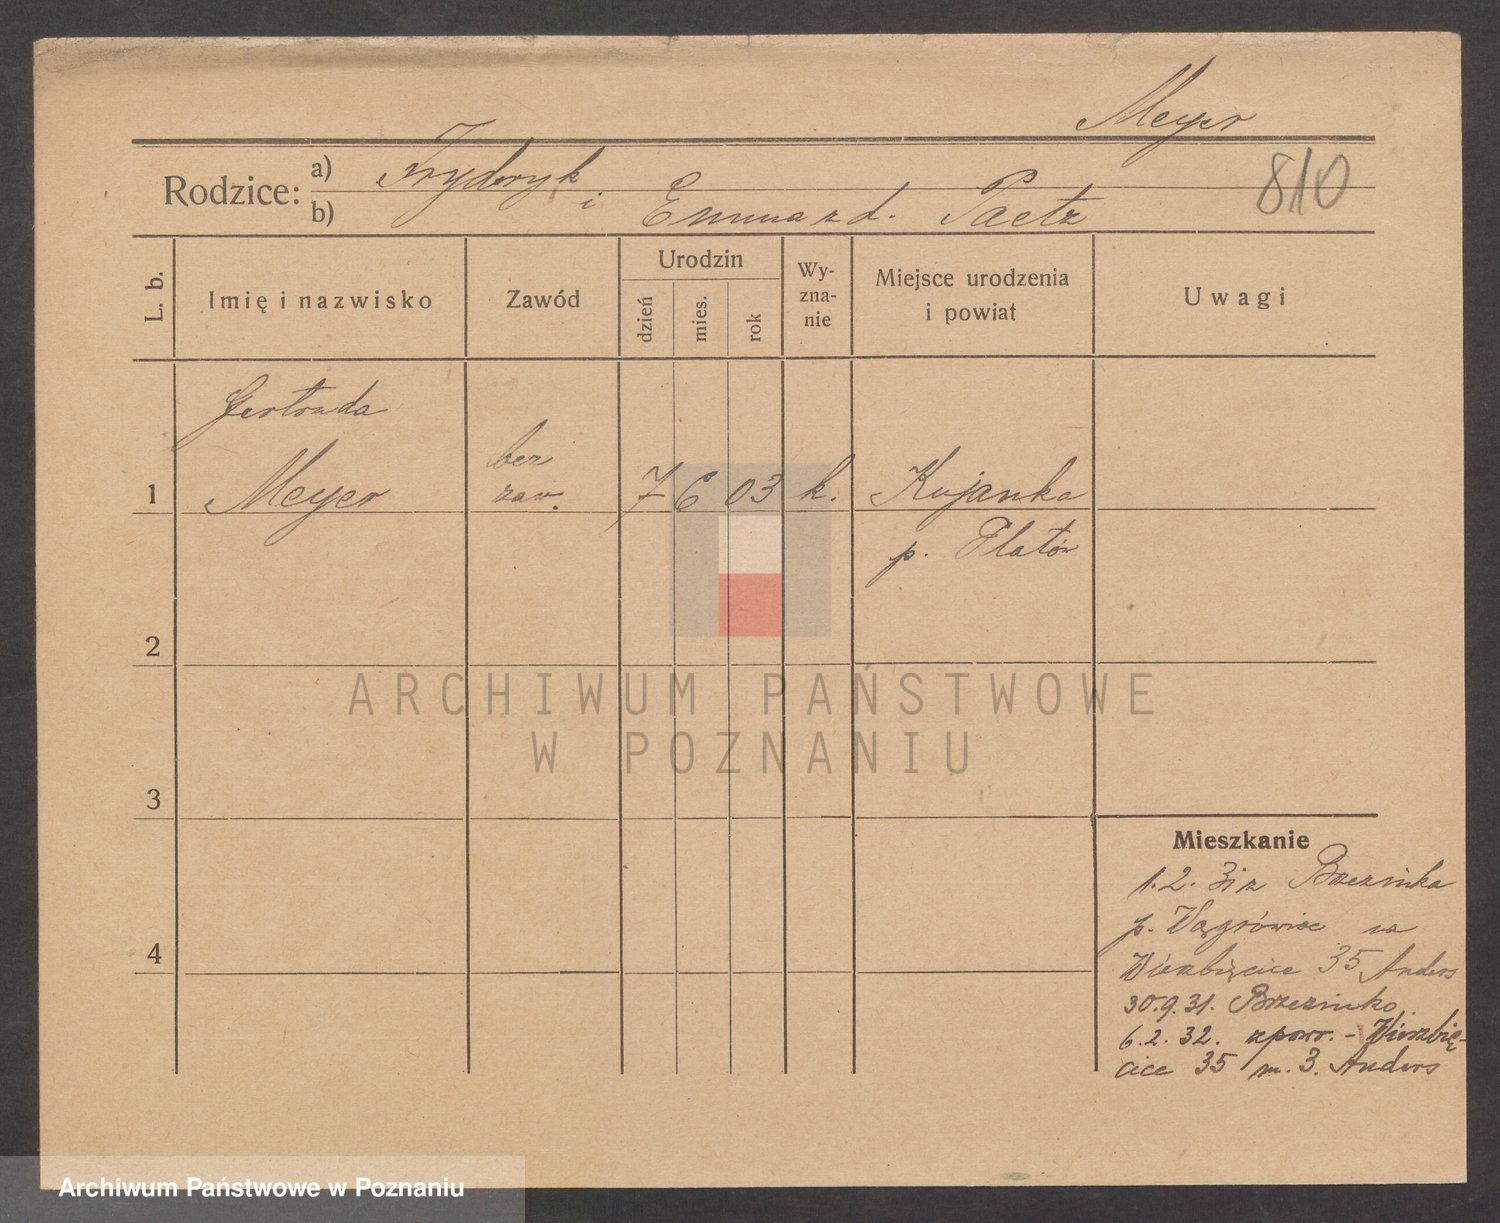 Meyer
810
Rodzice:
a) Fryderyk i
b) Emma z d. Paetz
L. b.
Imię i nazwisko
Zawód
Urodzin
dzień
mies.
rok
Wy-
zna-
nie
Miejsce urodzenia
i powiat
Uwagi
Gertruda
1 Meyer
bez
zaw.
7 6 03 k. Kujanka
p. Flatów
2
3
4
Mieszkanie
1.2. 31 z Brzezinka
p. Wągrówiec na
Wierzbięcice 35 Anders
30.9.31. Brzezinko
6.2.32. zpowr. - Wierzbię-
cice 35 m. 3. Anders
ARCHIWUM PAŃSTWOWE
W POZNANIU
Archiwum Państwowe w Poznaniu